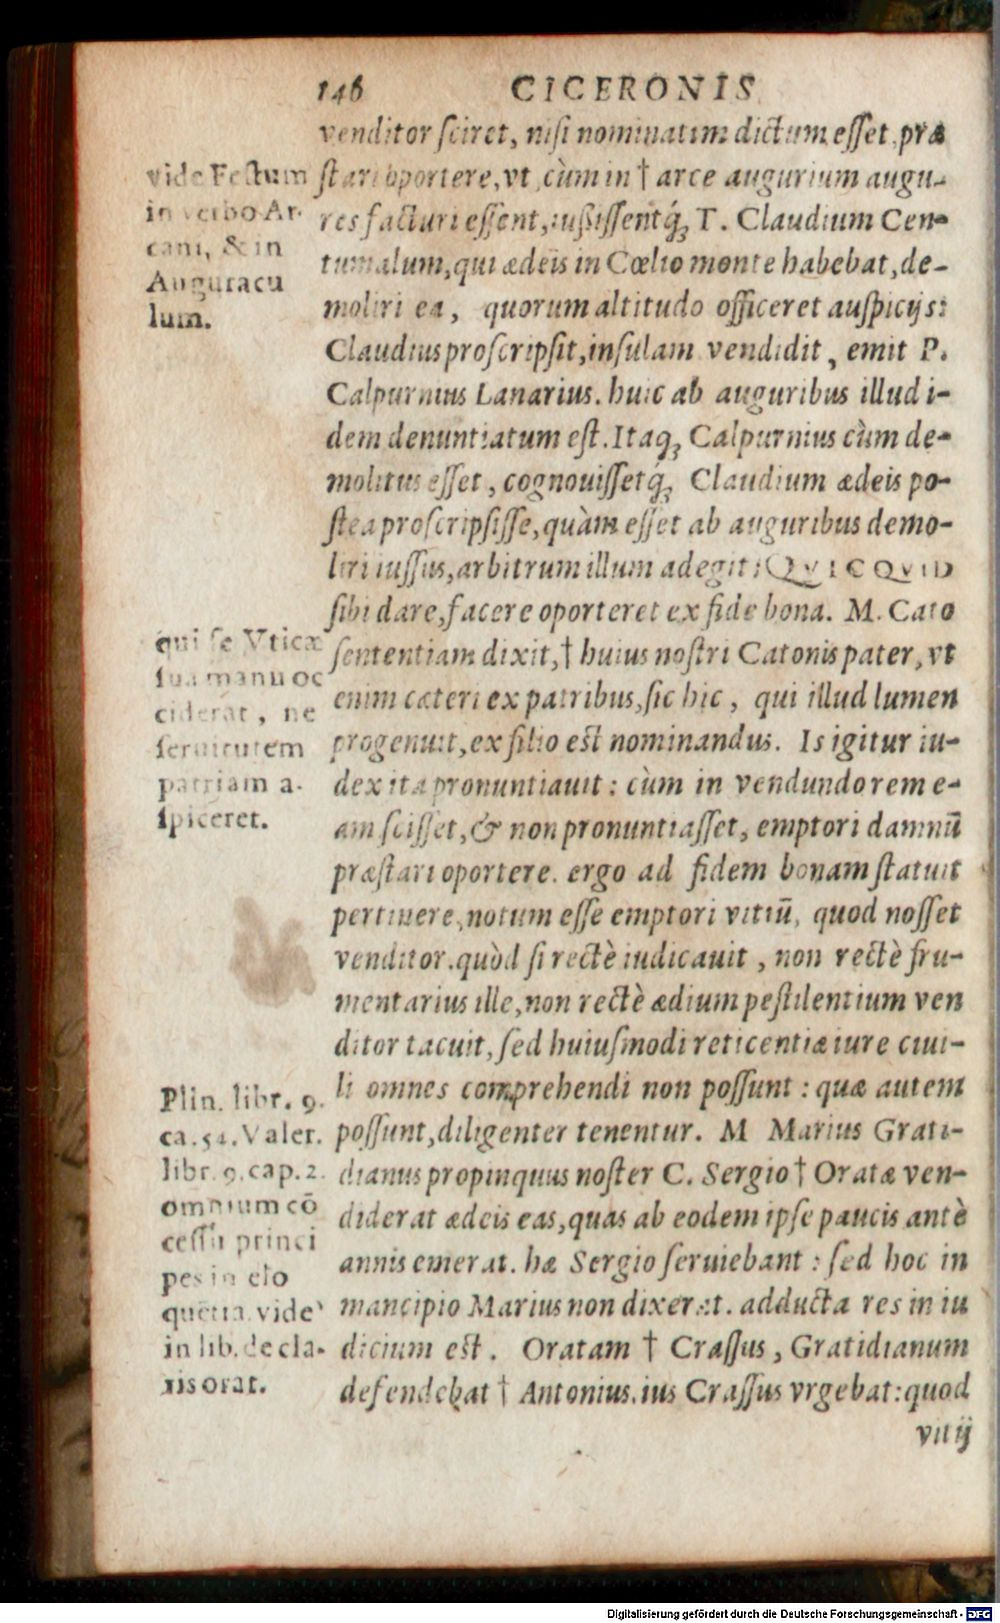 146 CICERONIS
venditor sciret, nisi nominatim dictum esset, præ
stari oportere, vt, cùm in † arce augurium augu-
res facturi essent, iußissentq́; T. Claudium Cen-
tumalum, qui ædeis in Cœlio monte habebat, de-
moliri ea, quorum altitudo officeret auspicijs:
Claudius proscripsit, insulam vendidit, emit P.
Calpurnius Lanarius. huic ab auguribus illud i-
dem denuntiatum est. Itaq; Calpurnius cùm de-
molitus esset, cognouissetq́; Claudium ædeis po-
stea proscripsisse, quàm esset ab auguribus demo-
liri iussus, arbitrum illum adegit: QVICQVID
sibi dare, facere oporteret ex fide bona. M. Cato
sententiam dixit, † huius nostri Catonis pater, vt
enim cæteri ex patribus, sic hic, qui illud lumen
progenuit, ex filio est nominandus. Is igitur iu-
dex ita pronuntiauit: cùm in vendundo rem e-
am scisset, & non pronuntiasset, emptori damnū
præstari oportere. ergo ad fidem bonam statuit
pertinere, notum esse emptori vitiū, quod nosset
venditor. quòd si rectè iudicauit, non rectè fru-
mentarius ille, non rectè ædium pestilentium ven
ditor tacuit, sed huiusmodi reticentiæ iure ciui-
li omnes comprehendi non possunt: quæ autem
possunt, diligenter tenentur. M Marius Grati-
dianus propinquus noster C. Sergio † Oratæ ven-
diderat ædeis eas, quas ab eodem ipse paucis antè
annis emerat. hæ Sergio seruiebant: sed hoc in
mancipio Marius non dixerat. adducta res in iu
dicium est. Oratam † Crassus, Gratidianum
defendebat † Antonius. ius Crassus vrgebat: quod
vitij
vide Festum
in verbo Ar-
cani, & in
Auguracu
lum.
qui se Vticæ
sua manu oc
ciderat, ne
seruitutem
patriam a-
spiceret.
Plin. libr. 9.
ca. 54. Valer.
libr. 9. cap. 2.
omnium cō
cessu princi
pes in elo
quētia. vide
in lib. de cla-
ris orat.
Digitalisierung gefördert durch die Deutsche Forschungsgemeinschaft - DFG